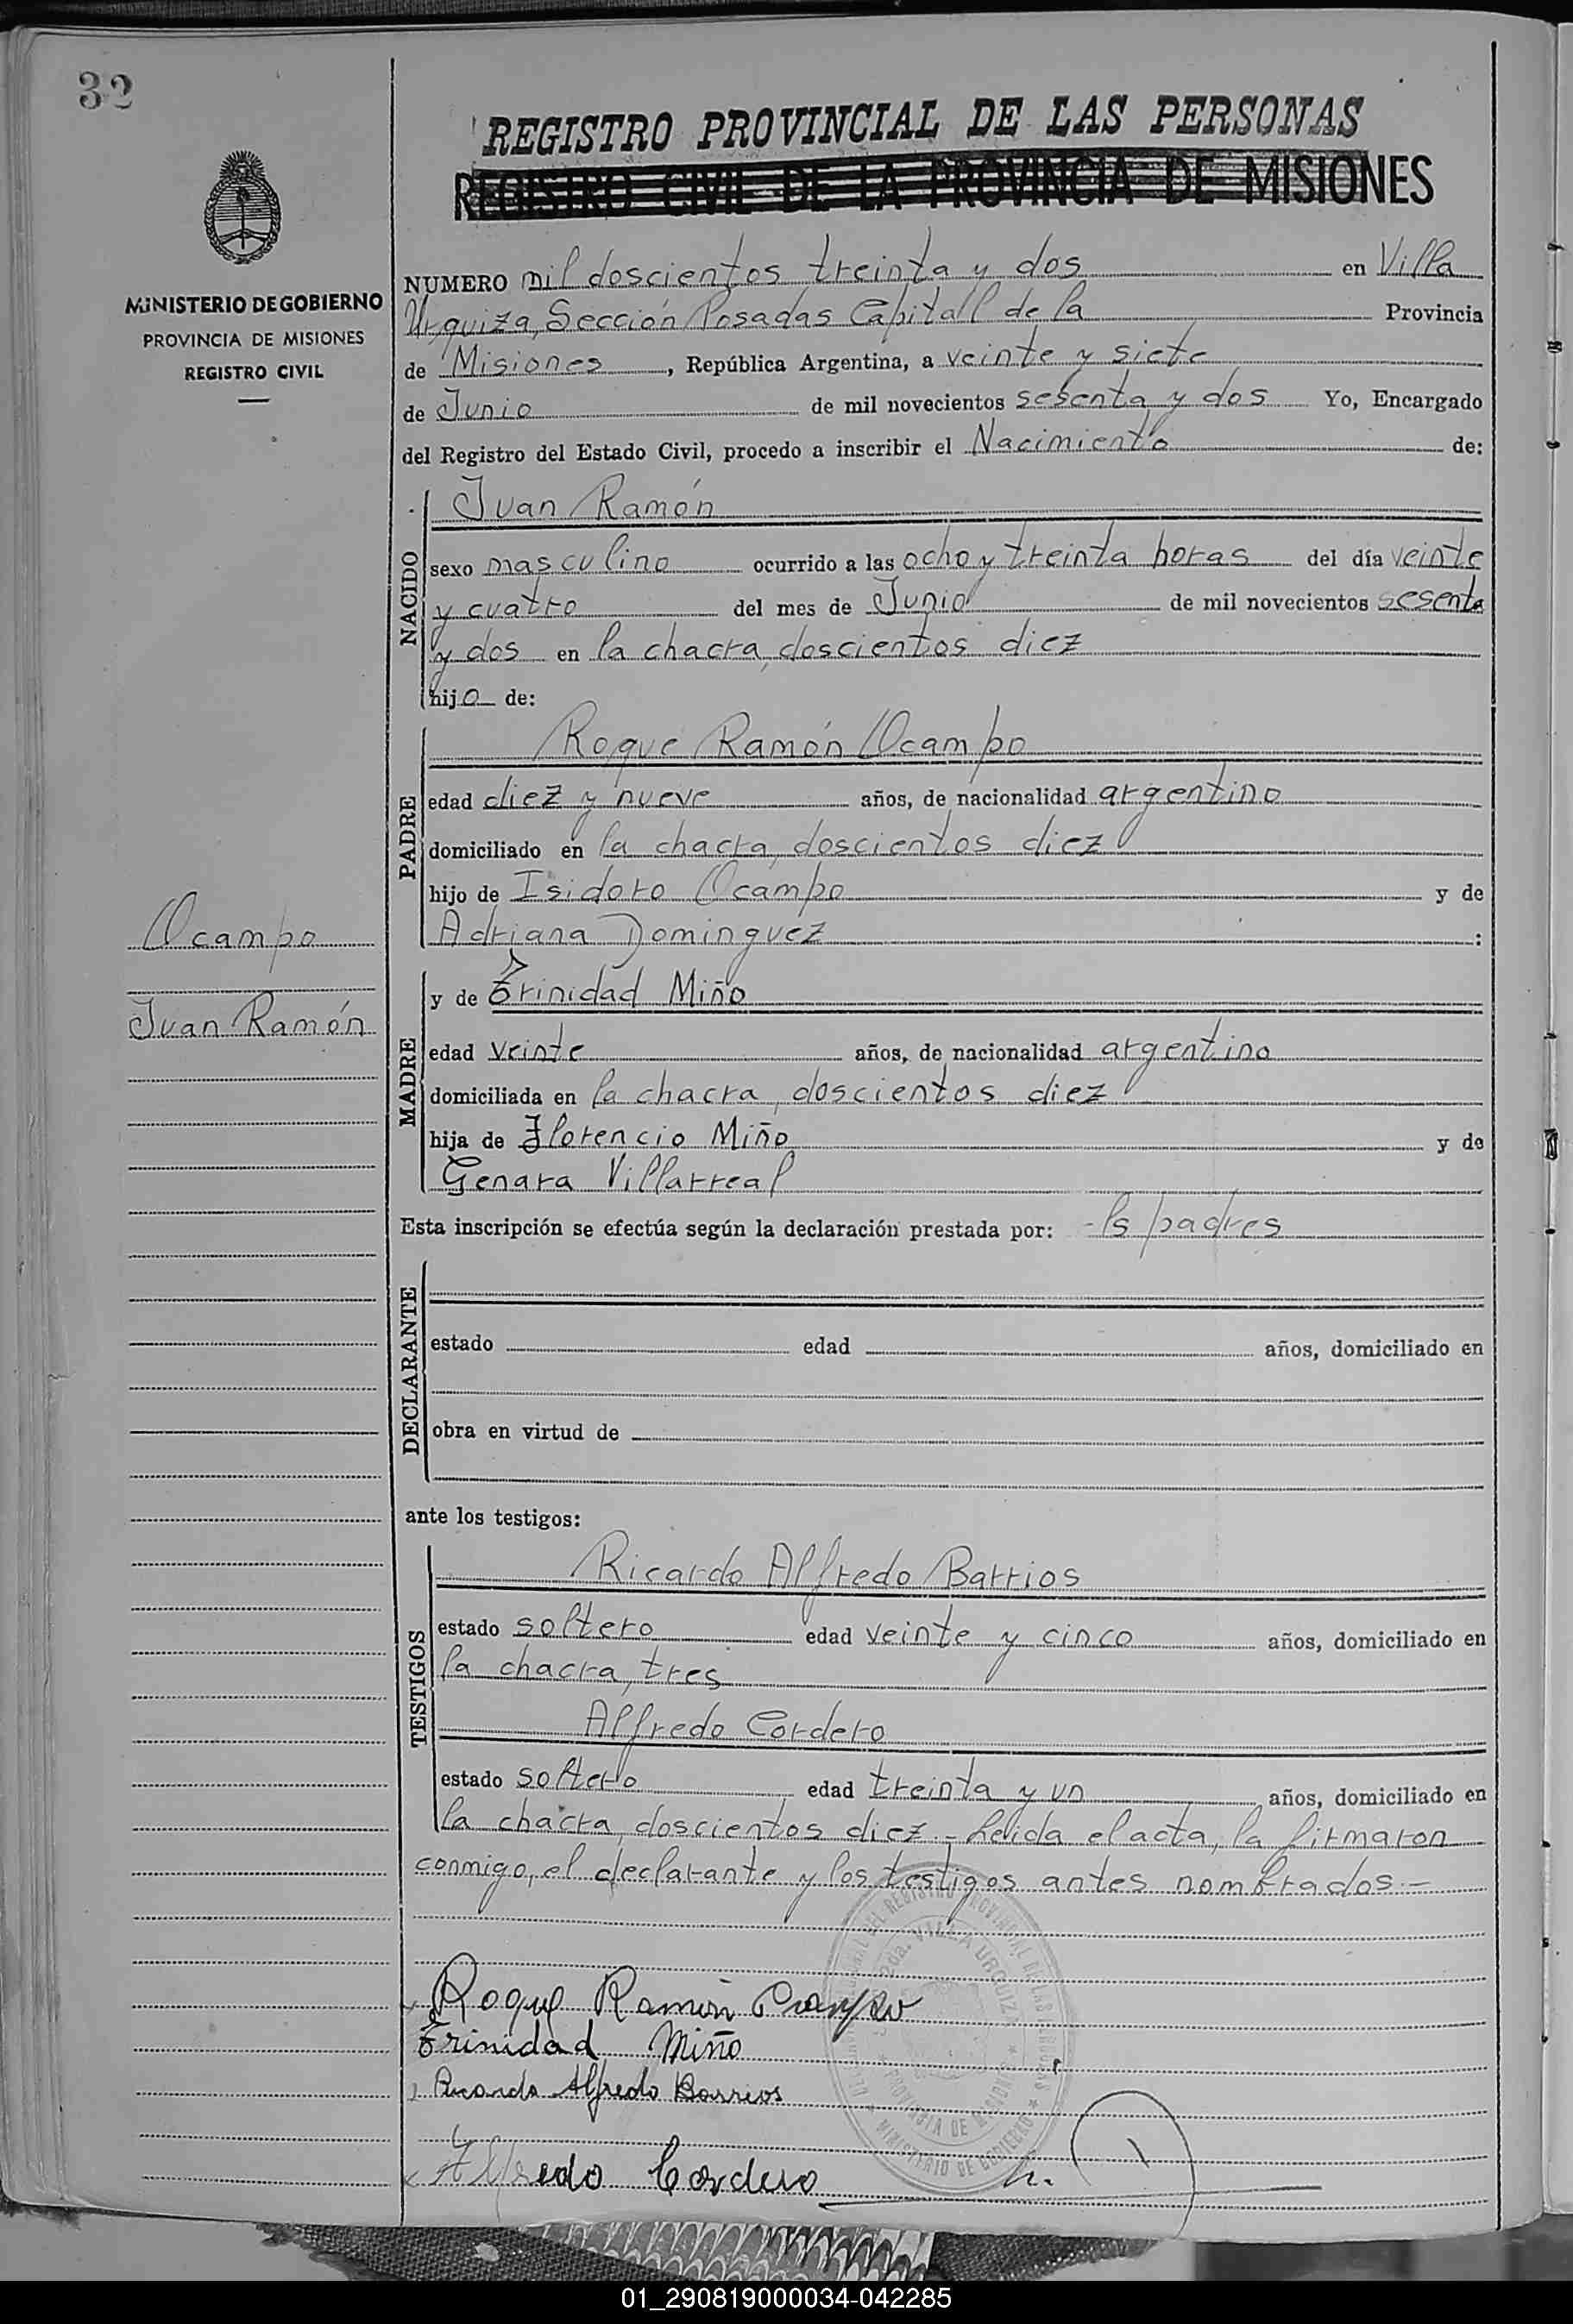 32
REGISTRO PROVINCIAL DE LAS PERSONAS
REGISTRO CIVIL DE LA PROVINCIA DE MISIONES
MINISTERIO DE GOBIERNO
PROVINCIA DE MISIONES
REGISTRO CIVIL
NUMERO mil doscientos treinta y dos en Villa
Urquiza, Sección Posadas Capitall de la Provincia
de Misiones, República Argentina, a veinte y siete
de Junio de mil novecientos sesenta y dos Yo, Encargado
del Registro del Estado Civil, procedo a inscribir el Nacimiento de:
NACIDO
Juan Ramón
sexo masculino ocurrido a las ocho y treinta horas del día veinte
y cuatro del mes de Junio de mil novecientos sesenta
y dos en la chacra, doscientos diez
hijo de:
PADRE
Roque Ramón Ocampo
edad diez y nueve años, de nacionalidad argentino
domiciliado en la chacra, doscientos diez
hijo de Isidoro Ocampo y de
Adriana Dominguez :
Ocampo
Juan Ramón
MADRE
y de Trinidad Miño
edad veinte años, de nacionalidad argentina
domiciliada en la chacra, doscientos diez
hija de Florencio Miño y de
Genara Villarreal
Esta inscripción se efectúa según la declaración prestada por: - ls padres
DECLARANTE
estado edad años, domiciliado en
obra en virtud de
ante los testigos:
TESTIGOS
Ricardo Alfredo Barrios
estado soltero edad veinte y cinco años, domiciliado en
la chacra, tres
Alfredo Cordero
estado soltero edad treinta y un años, domiciliado en
la chacra, doscientos diez.- Leida el acta, la firmaron
conmigo, el declarante y los testigos antes nombrados.-
Roque Ramón Ocampo
Trinidad Miño
Ricardo Alfredo Barrios
Alfredo Cordero
2da. VILLA URQUIZA
PROVINCIA DE MISIONES
MINISTERIO DE GOBIERNO
01_290819000034-042285